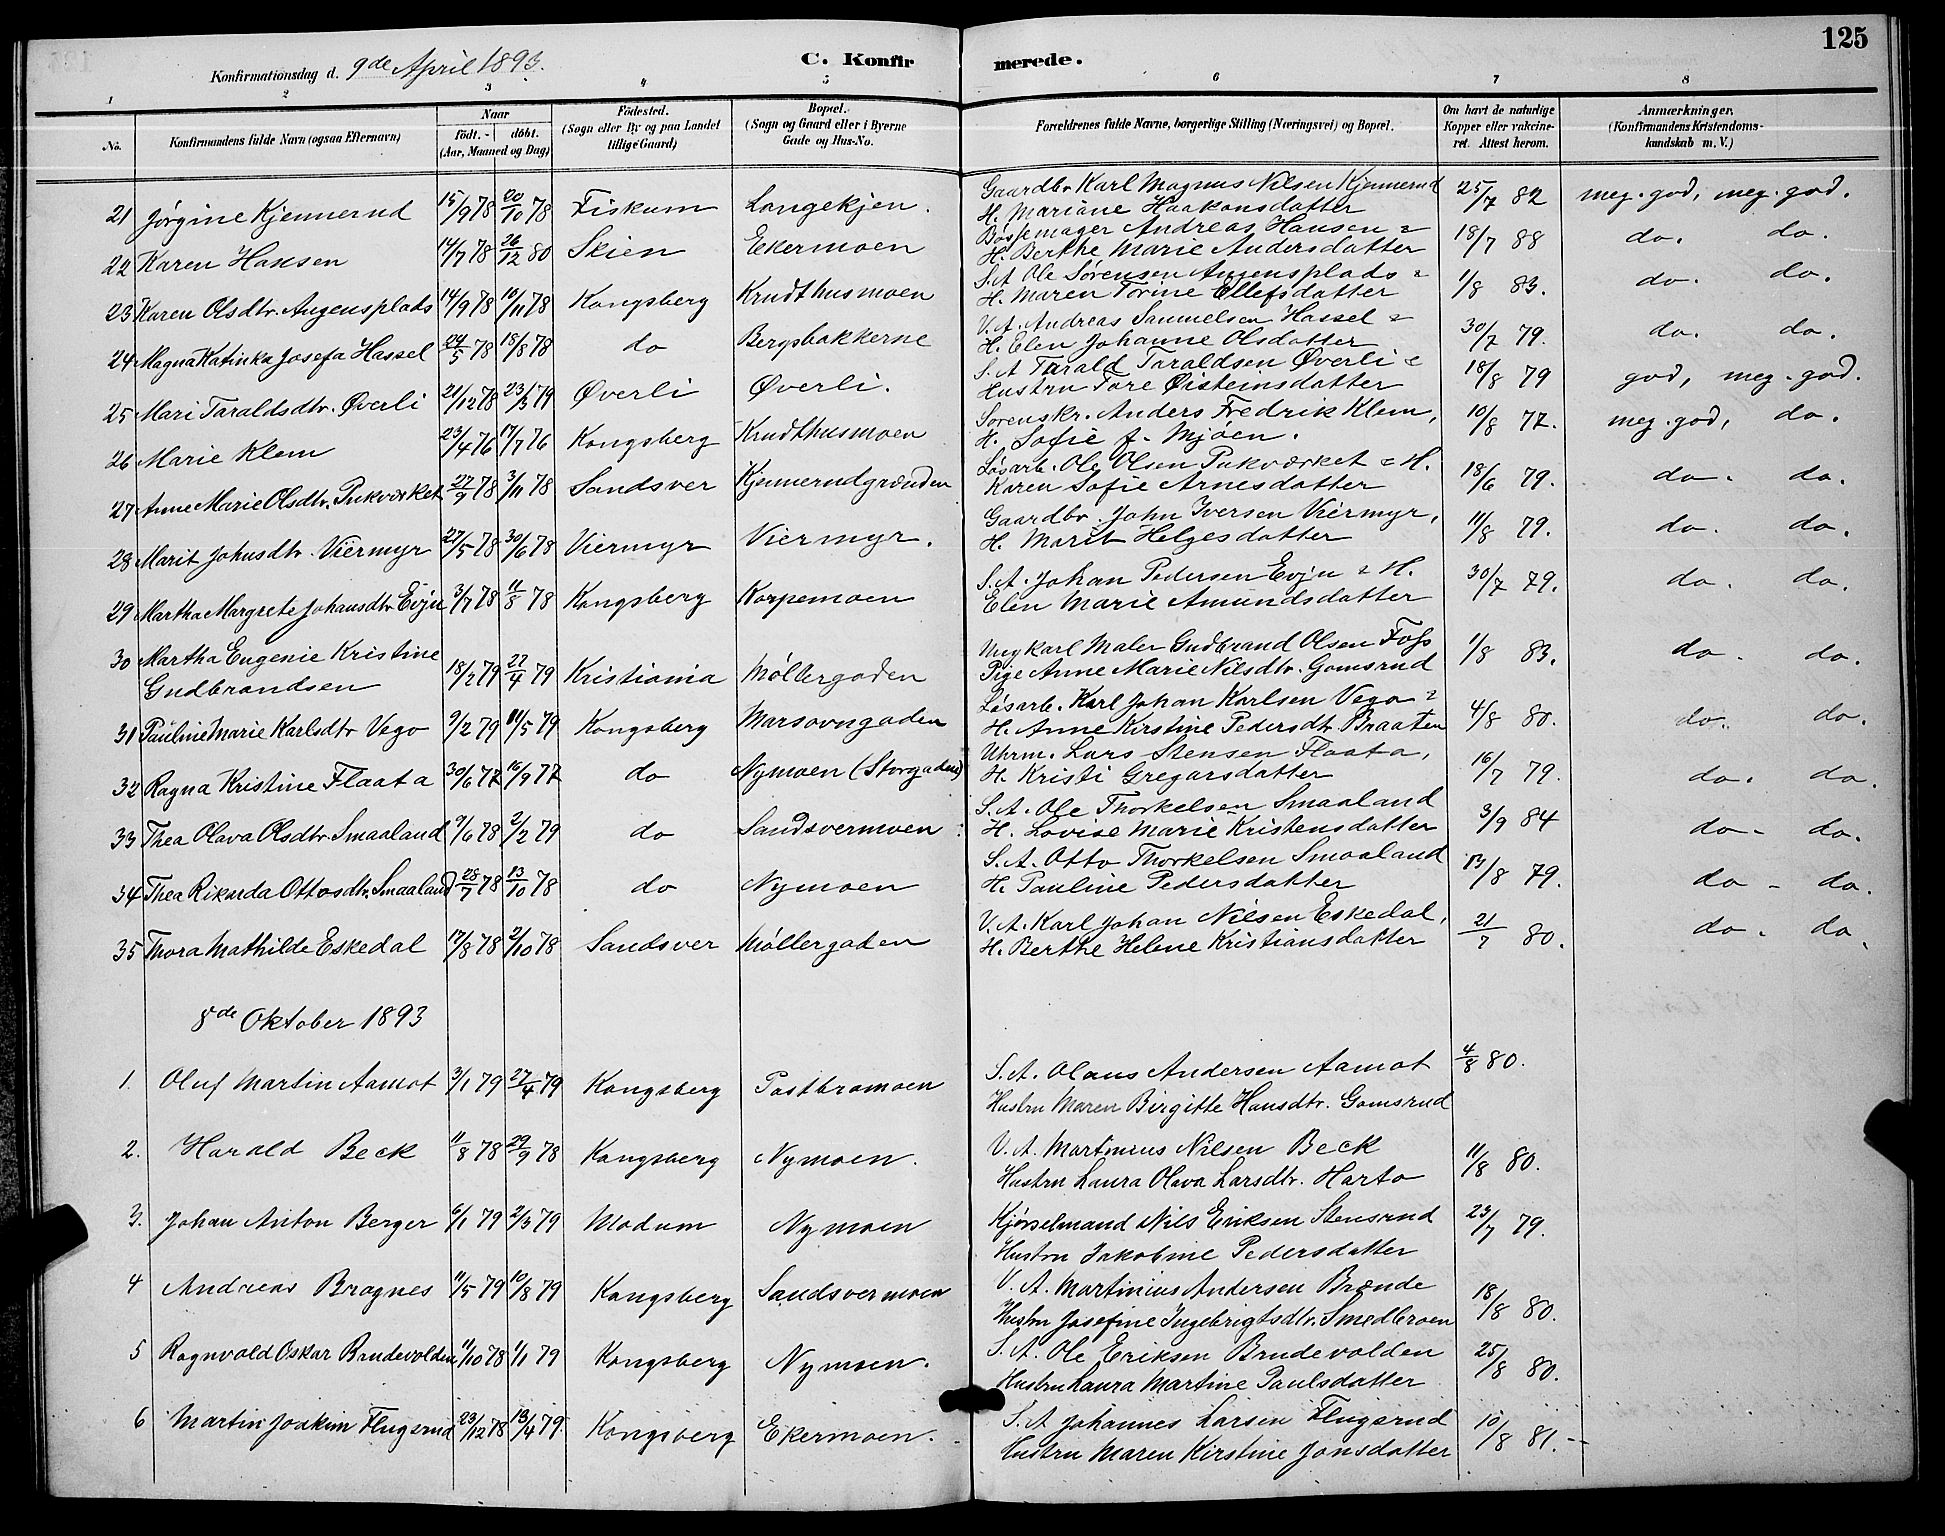 125
Konfirmationsdag d. 9de April 1893.
C. Konfirmerede.
1 2 3 4 5 6 7 8
No.
Konfirmandens fulde Navn (ogsaa Efternavn)
Naar
født. - døbt.
(Aar, Maaned og Dag)
Fødested.
(Sogn eller By og paa Landet
tillige Gaard)
Bopæl.
(Sogn og Gaard eller i Byerne
Gade og Hus-No.
Forældrenes fulde Navne, borgerlige Stilling (Næringsvei) og Bopæl.
Om havt de naturlige
Kopper eller vakcine-
ret. Attest herom.
Anmærkninger.
(Konfirmandens Kristendoms-
kundskab m. V.)
21 Jørgine Kjennerud 15/9 78 20/10 78 Fiskum Langekjen. Gaardbr Karl Magnus Nilsen Kjennerud 25/7 82 meg. god, meg. god.
H. Mariane Haakonsdatter
22 Karen Hansen 14/7 78 26/12 80 Skien Ekermoen Bøssemager Andreas Hansen & 18/7 88 do. do.
H. Berthe Marie Andersdatter
23 Karen Olsdtr. Augensplads 14/9 78 10/11 78 Kongsberg Krudthusmoen S.A. Ole Sørensen Augensplads & 1/8 83. do. do.
H. Maren Torine Ellefsdatter
24 Magna Katinka Josefa Hassel 24/5 78 18/8 78 do Bergsbakkerne V.A. Andreas Samuelsen Hassel & 30/7 79. do. do.
H. Elen Johanne Olsdatter
25 Mari Taraldsdtr. Øverli 21/12 78 23/3 79 Øverli Øverli. S.A. Tarald Taraldsen Øverli & 18/8 79 god, meg. god.
Hustru Tore Øisteinsdatter
26 Marie Klem 23/4 76 17/7 76 Kongsberg Krudthusmoen Sorenskr. Anders Fredrik Klem, 10/8 77. meg. god, do.
H. Sofie f. Mjøen.
27 Anne Marie Olsdtr. Pukværket 27/9 78 3/11 78 Sandsver Kjennerudgrænden Løsarb. Ole Olsen Pukværket & H. 18/6 79. do. do.
Karen Sofie Arnesdatter
28 Marit Johnsdtr. Viermyr 27/5 78 30/6 78 Viermyr Viermyr. Gaardbr. John Iversen Viermyr, 11/8 79. do. do.
H. Marit Helgesdatter
29 Martha Margrete Johansdtr Evju 3/7 78 11/8 78 Kongsberg Korpemoen S.A. Johan Pedersen Evju & H. 30/7 79. do. do.
Elen Marie Amundsdatter
30 Martha Eugenie Kristine 18/2 79 27/4 79 Kristiania Møllergaden Ungkarl Maler Gudbrand Olsen Foss 1/8 83. do. do.
Gudbrandsen Pige Anne Marie Nilsdtr. Gomsrud
31 Pauline Marie Karlsdtr Vego 9/2 79 11/5 79 Kongsberg Marsovngaden Løsarb. Karl Johan Karlsen Vego & 4/8 80. do. do.
H. Anne Kirstine Pedersdtr Braaten
32 Ragna Kristine Flaata 30/6 77 16/9 77 do Nymoen (Storgaden) Uhrm. Lars Stensen Flaata, 16/7 79. do. do.
H. Kristi Gregarsdatter
33 Thea Olava Olsdtr. Smaaland 9/6 78 2/2 79 do Sandsvermoen S.A. Ole Thorkelsen Smaaland 3/9 84 do. do.
H. Lovise Marie Kristensdatter
34 Thea Rikarda Ottosdtr. Smaaland 28/7 78 13/10 78 do Nymoen S.A. Otto Thorkelsen Smaaland 13/8 79. do - do.
H. Pauline Pedersdatter
35 Thora Mathilde Eskedal 17/8 78 2/10 78 Sandsver Møllergaden V.A. Karl Johan Nilsen Eskedal, 21/7 80. do. do.
H. Berthe Helene Kristiansdatter
8de Oktober 1893
1. Oluf Martin Aamot 3/1 79 27/4 79 Kongsberg Postbromoen S.A. Olaus Andersen Aamot 4/8 80.
Hustru Maren Birgitte Hansdtr. Gomsrud
2. Harald Beck 11/8 78 29/9 78 Kongsberg Nymoen. V.A. Martinius Nilsen Beck 11/8 80.
Hustru Laura Olava Larsdtr. Harto
3. Johan Anton Berger 6/1 79 2/3 79 Modum Nymoen Kjørselmand Nils Eriksen Stensrud 23/7 79.
Hustru Jakobine Pedersdatter
4 Andreas Bragnes 11/5 79 10/8 79 Kongsberg Sandsvermoen V.A. Martinius Andersen Brænde 18/8 80.
Hustru Josefine Ingebrigtsdtr. Smedbroen
5 Ragnvald Oskar Brudevolden 11/10 78 1/1 79 Kongsberg Nymoen. S.A. Ole Eriksen Brudevolden 25/8 80.
Hustru Laura Martine Paulsdatter
6 Martin Joakim Flugsrud 23/12 78 13/4 79. Kongsberg Ekermoen. S.A. Johannes Larsen Flugsrud 10/8 81.
Hustru Maren Kirstine Jonsdatter